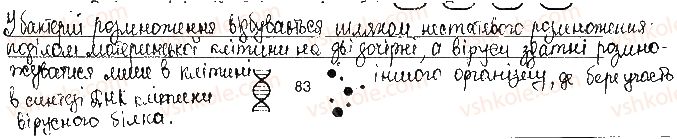 У бактерій розмноження відбувається шляхом нестатевого розмноження
поділом материнської клітини на дві дочірні, а віруси здатні розмно-
жуватися лише в клітині іншого організму, де бере участь
в синтезі ДНК клітини
вірусного білка.
83